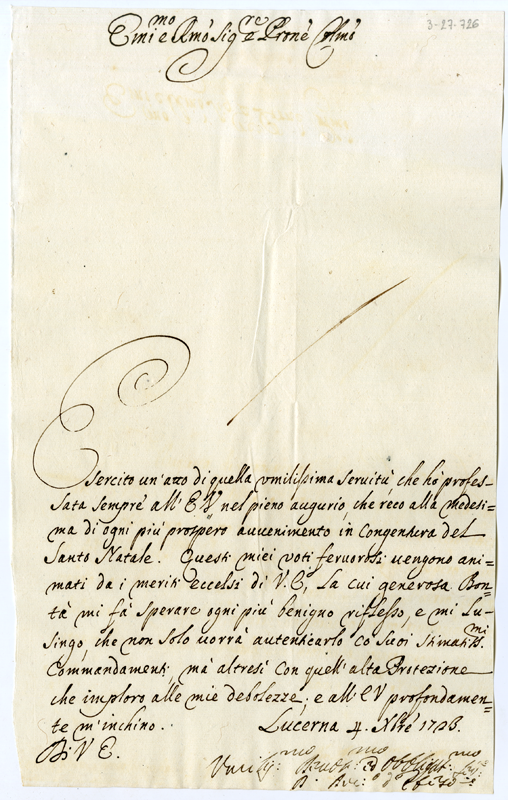 3-27.726
Emi e Rmo Sig.re Prone Colmo
Esercito un'atto di quella vmilissima seruitù che hò profes-
sata sempre all'E.V. nel pieno augurio, che reco alla medesi=
ma di ogni più prospero auuenimento in Congentura del
Santo Natale. Questi miei voti feruorosi uengono ani=
mati da i meriti eccelsi di V.E., la cui generosa Bon=
tà mi fà sperare ogni più benigno riflesso, e mi lu=
singo, che non solo uorrà autenticarlo co suoi stimatiss.mi
Commandamenti, mà altresì con quell'alta Protezione
che imploro alle mie debolezze; e all'EV profondamen=
te m'inchino.. Lucerna 4. Xbre 1728.
Di V.E.
Vmiliss.mo